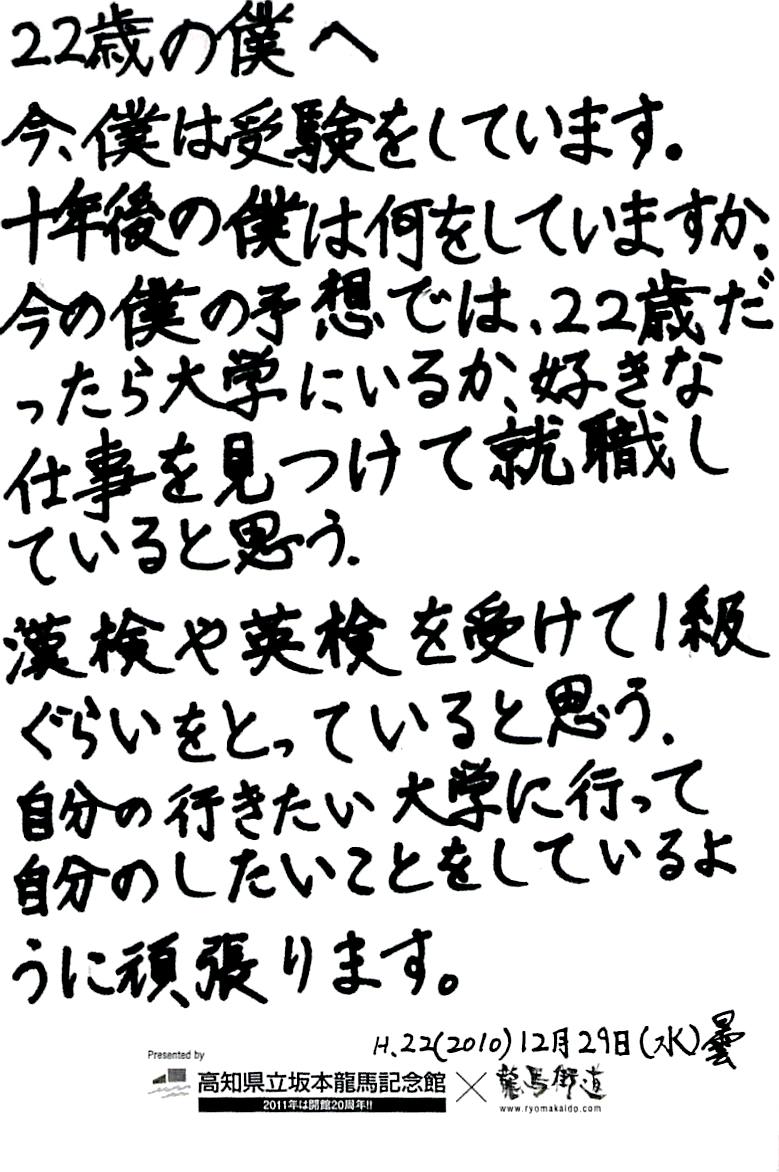 22歳の僕へ
今、僕は受験をしています。
十年後の僕は何をしていますか。
今の僕の予想では、22歳だ
ったら大学にいるか、好きな
仕事を見つけて就職し
ていると思う.
漢検や英検を受けて1級
ぐらいをとっていると思う.
自分の行きたい大学に行って
自分のしたいことをしているよ
うに頑張ります。
H.22(2010)12月29日(水)曇
Presented by
高知県立坂本龍馬記念館×龍馬街道
2011年は開館20周年!!
www.ryomakaido.com